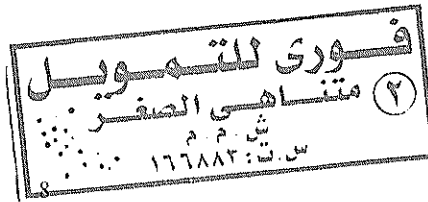 فورى للتمويل
متناهى الصغر ٢
ش . م . م
س.ت: ١٦٦٨٨٢
8